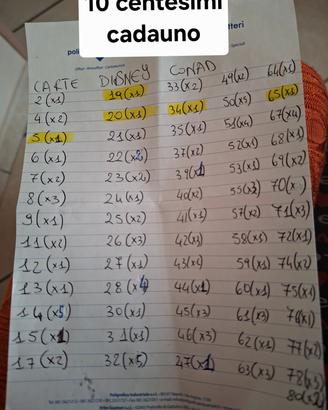 10 centesimi
cadauno
CARTE DISNEY CONAD
2 (x1)
4 (x2)
5 (x1)
6 (x1)
7 (x2)
8 (x3)
9 (x1)
11 (x2)
12 (x1)
13 (x1)
14 (x5)
15 (x1)
17 (x2)
19 (x1)
20 (x1)
21 (x1)
22 (x2)
23 (x2)
24 (x1)
25 (x2)
26 (x3)
27 (x1)
28 (x4)
30 (x1)
31 (x1)
32 (x5)
33 (x2)
34 (x1)
35 (x1)
37 (x2)
39 (x1)
40 (x2)
41 (x1)
42 (x3)
43 (x1)
44 (x1)
45 (x3)
46 (x3)
47 (x1)
49 (x2)
50 (x5)
51 (x4)
52 (x1)
53 (x1)
55 (x3)
57 (x2)
58 (x3)
59 (x1)
60 (x1)
61 (x3)
62 (x1)
63 (x3)
64 (x1)
65 (x1)
67 (x4)
68 (x1)
69 (x2)
70 (x
71 (x3)
72 (x1)
74 (x2)
75 (x1)
76 (x1)
77 (x2)
78 (x3)
80 (x2)